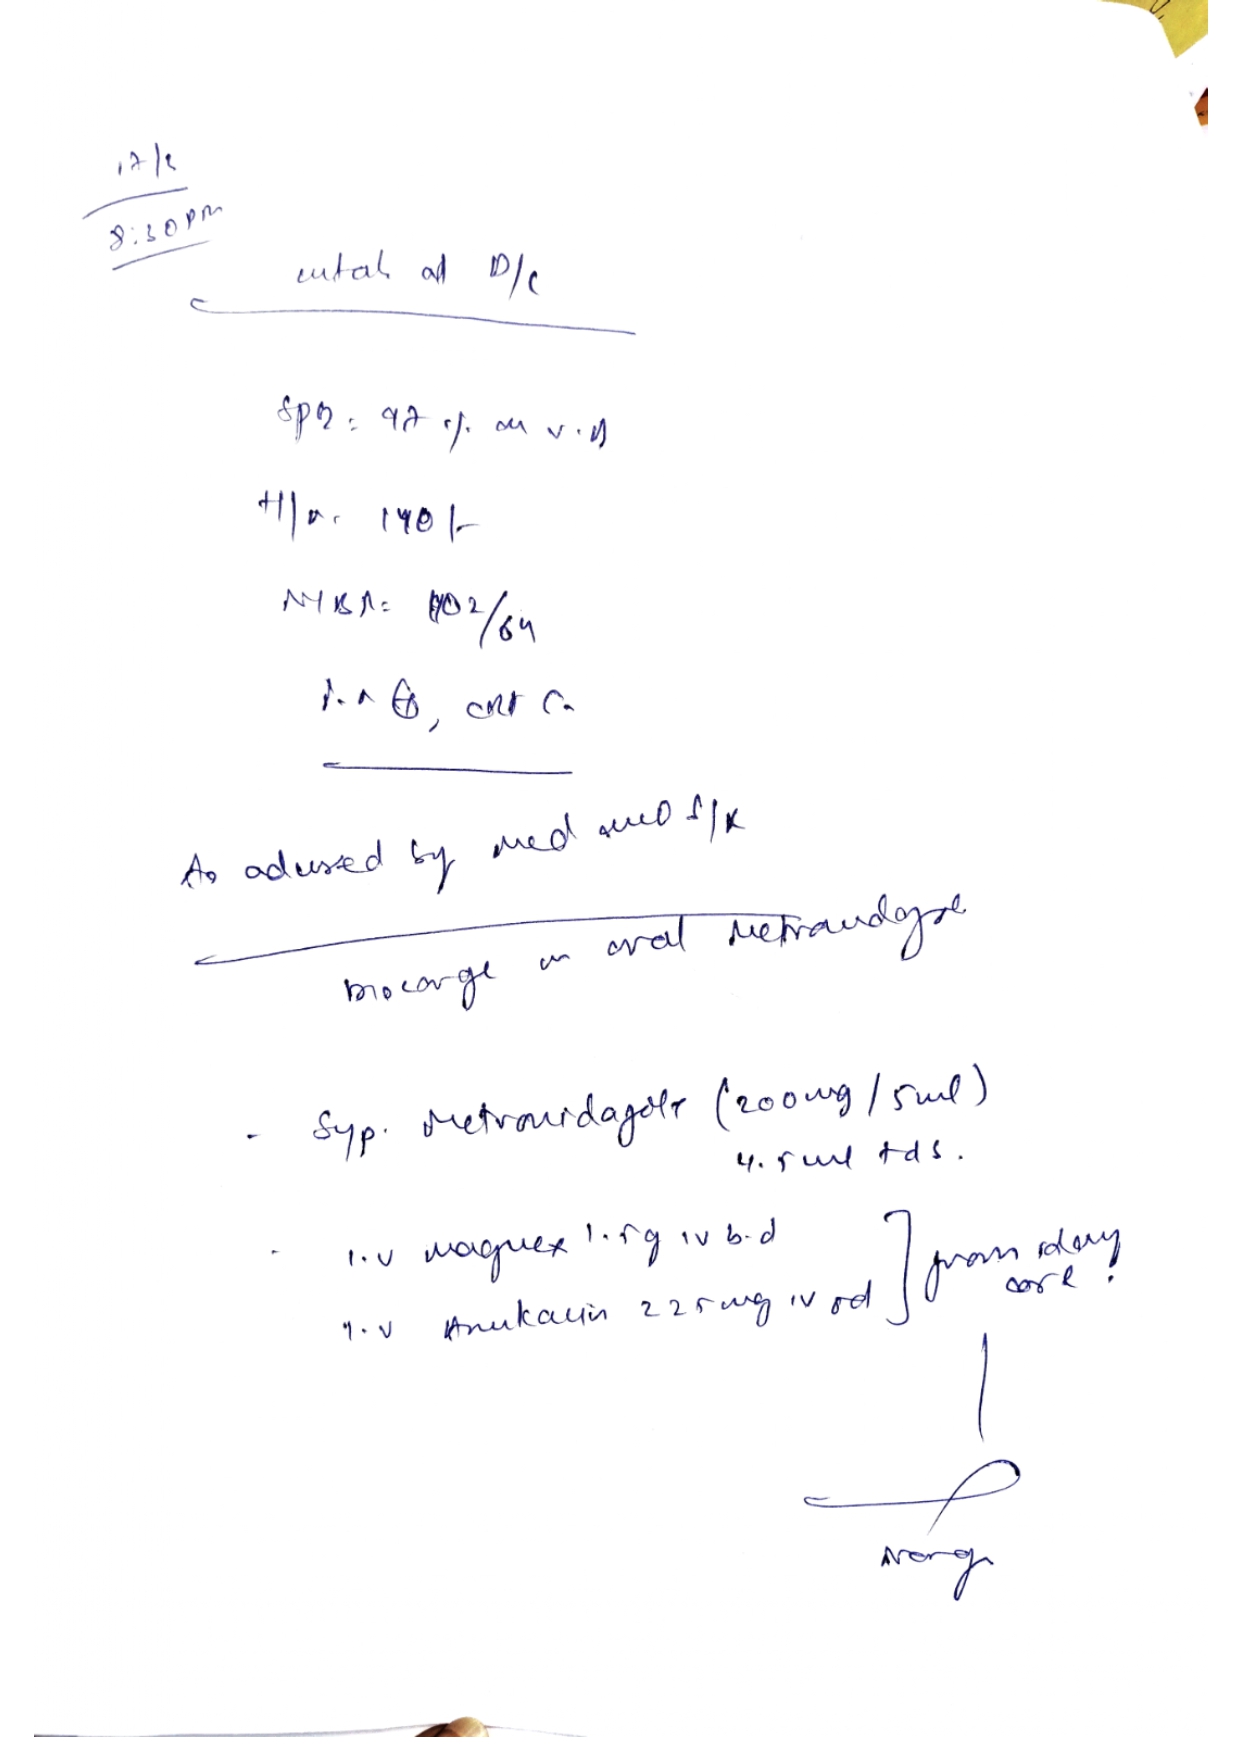 17/8
8:30 PM
vitals at D/C
SpO2: 97 % on
H/R. 140/-
NIBP: 102/64
P.P ⊕, CRT
As advised by Med S/R
Discharge on oral Metronidazole
- Syp. Metronidazole (200mg/5ml)
4.5 ml tds.
- I.V Magnex 1.5g IV b.d
I.V Amikacin 225 mg IV od ] from day care.